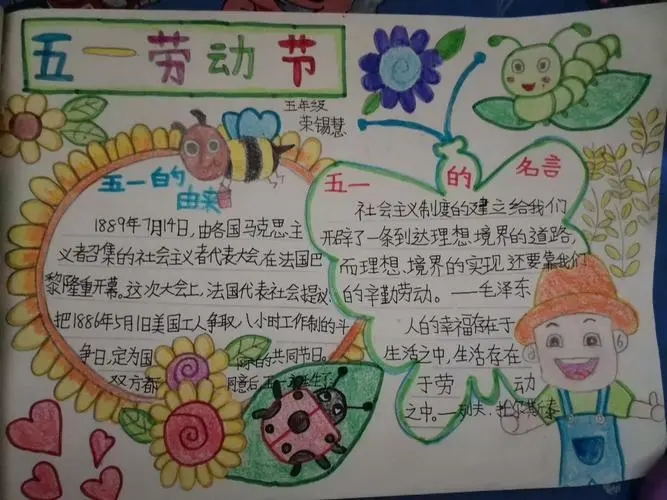 五一劳动节
五年级
荣锡慧
五一的
由来
1889年7月14日,由各国马克思主
义者召集的社会主义者代表大会,在法国巴
黎隆重开幕。这次大会上,法国代表社会提议
把1886年5月1日美国工人争取八小时工作制的斗
争日,定为国 际的共同节日。
双方都 同意后,五一 诞生了
五一的名言
社会主义制度的建立给我们
开辟了一条到达理想境界的道路,
而理想境界的实现还要靠我们
的辛勤劳动。——毛泽东
人的幸福存在于
生活之中,生活存在
于劳动
之中。—列夫·托尔斯泰